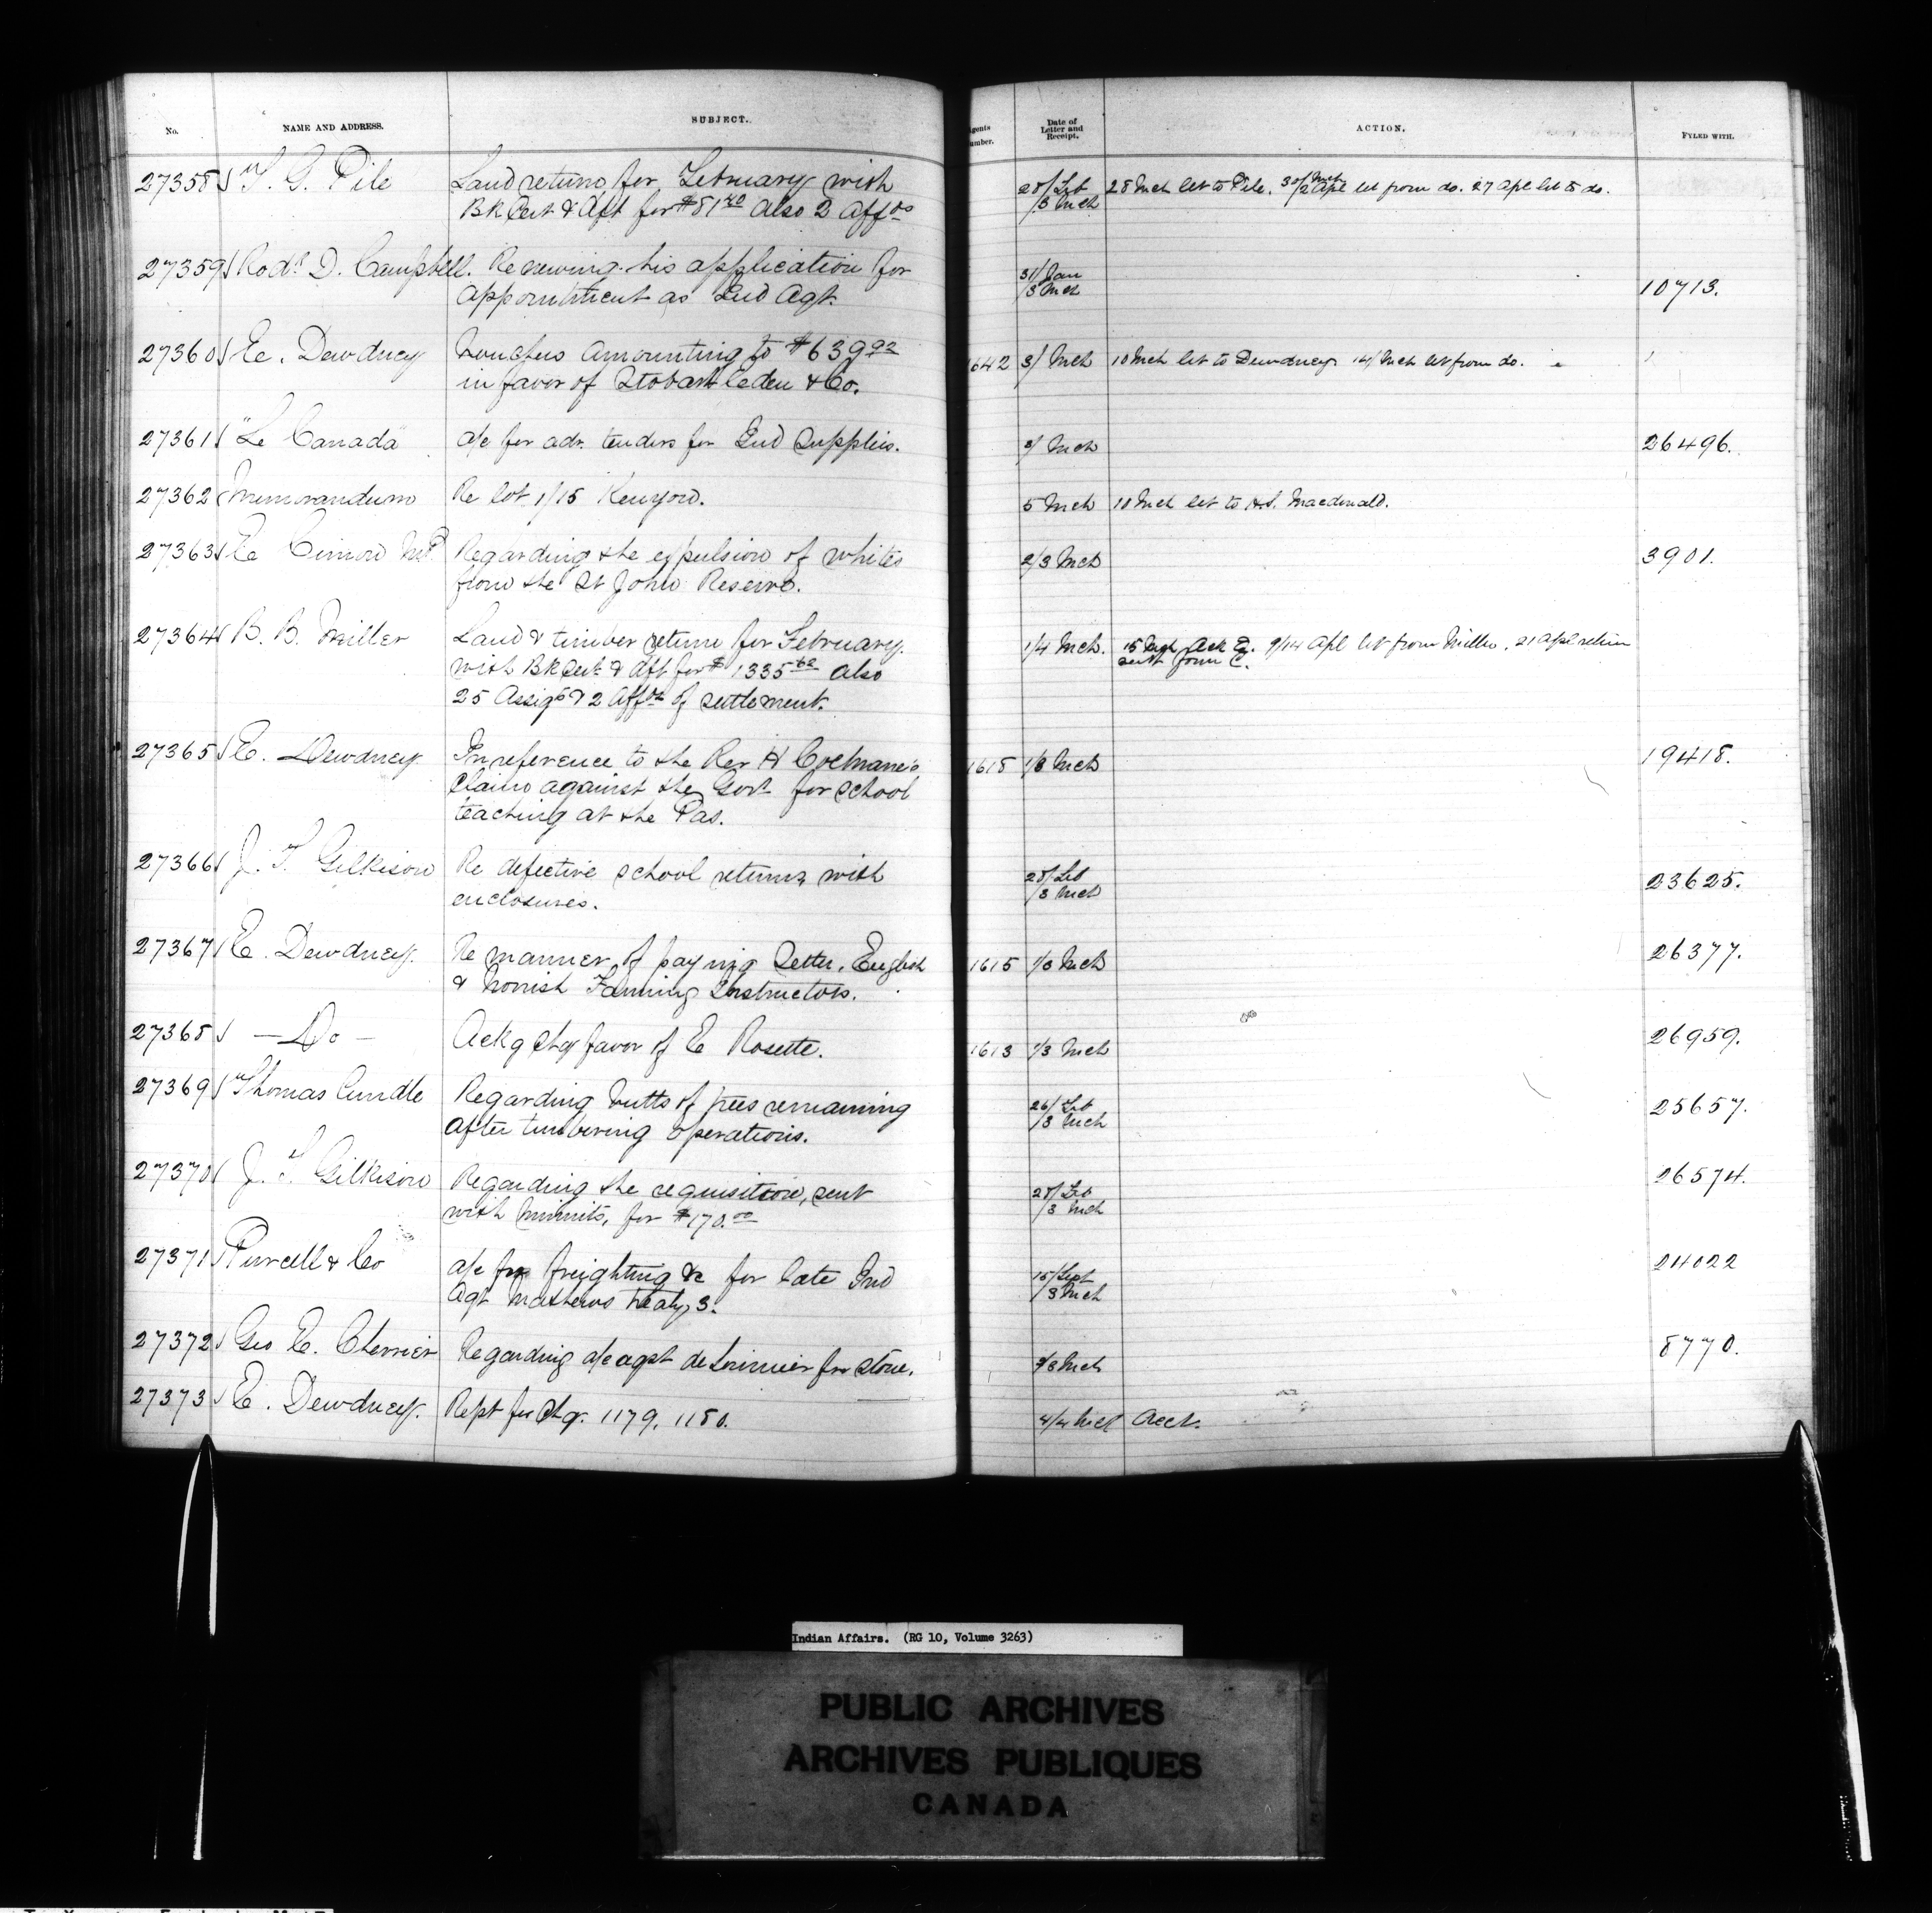 No. NAME AND ADDRESS. SUBJECT. Agents Number. Date of Letter and Receipt. ACTION. FYLED WITH.
27358 T. G. Pile Land returns for February with 28/Feb 28 Mch let to Pile. 30/Mch 2 Apl let from do. 27 Apl let to do.
Bk Cert & Dft for $81.40 also 2 Affts /3 Mch
27359 Rodk D. Campbell. Renewing his application for 31/Jan
appointment as Ind Agt. /3 Mch 10713.
27360 E. Dewdney Vouchers amounting to $639.92 1642 3/ Mch 10 Mch let to Dewdney. 14/ Mch let from do.
in favor of Stobart Eden & Co.
27361 "Le Canada" a/c for adv. tenders for Ind Supplies. 3/ Mch 26496.
27362 Memorandum Re lot 1/15 Kenyon. 5 Mch 10 Mch let to Macdonald.
27363 E Cimon MP Regarding the expulsion of whites 2/3 Mch 3901.
from the St John Reserve.
27364 B. B. Miller Land & timber returns for February. 1/4 Mch. 15 Mch Ack E. 9/14 Apl let from Miller. 21 Apl return
with Bk Cert & Dft for $1335.62 also sent form C.
25 Assigts & 2 Affts of settlement.
27365 E. Dewdney In reference to the Rev H Cochrane's 1618 1/3 Mch 19418.
claim against the Govt for school
teaching at the Pas.
27366 J. T. Gilkison Re defective school returns with 28/Feb
enclosures. /3 Mch 23625.
27367 E. Dewdney. Re manner of paying Setter, English 1615 1/3 Mch 26377.
& Norrish Farming Instructors.
27368 — Do — Ackg chq favor of E Rosette. 1613 1/3 Mch 26959.
27369 Thomas Cundle Regarding butts of trees remaining 26/Feb 25657.
after timbering operations. /3 Mch
27370 J. T. Gilkison Regarding the requisition, sent 28/Feb 26574.
with minuits, for $170.00 /3 Mch
27371 Purcell & Co a/c for freighting &c for late Ind 15/Sept 24022
Agt Mathews treaty 3. /3 Mch
27372 Geo E. Cherrier Regarding a/c agst de Lorimier for stone. 3/3 Mch 8770.
27373 E. Dewdney. Rept for Chq. 1179. 1180. 4/4 Mch Acct.
Indian Affairs. (RG 10, Volume 3263)
PUBLIC ARCHIVES
ARCHIVES PUBLIQUES
CANADA